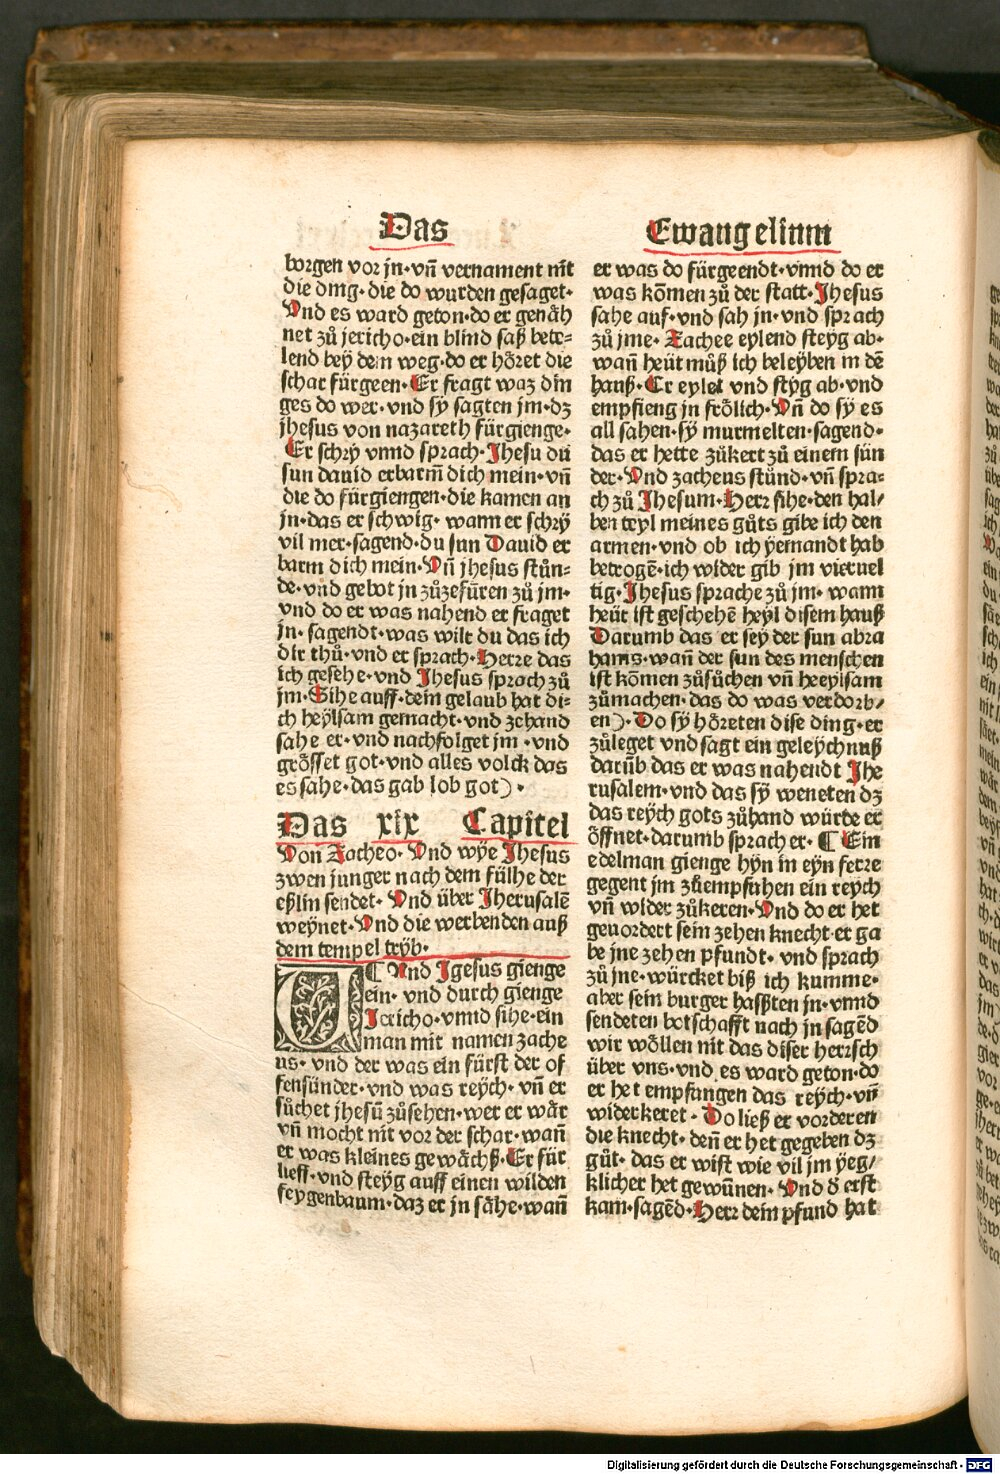 Das
Ewangelium
borgen vor jn·vñ vernament nit
die ding·die do wurden gesaget·
Vnd es ward geton·do er genäh
net zů jericho·ein blind saß bete-
lend bey dem weg·do er höret die
schar fürgeen·Er fragt waz din
ges do wer·vnd sÿ sagten jm·dz
jhesus von nazareth fürgienge·
Er schrÿ vnnd sprach·Jhesu du
sun dauid erbarm̄ dich mein·vñ
die do fürgiengen·die kamen an
jn·das er schwig·wann er schrÿ
vil mer·sagend·du sun Dauid er
barm dich mein·Vñ jhesus stůn-
de·vnd gebot jn zůzefüren zů jm·
vnd do er was nahend er fraget
jn·sagendt·was wilt du das ich
dir thů·vnd er sprach·Herre das
ich gesehe·vnd Jhesus sprach zů
jm·Sihe auff·dein gelaub hat di-
ch heÿlsam gemacht·vnd zehand
sahe er·vnd nachfolget jm·vnd
grösset got·vnd alles volck das
es sahe·das gab lob got)·
Das xix Capitel
Von Zacheo·Vnd wÿe Jhesus
zwen junger nach dem fülhe der
eßlin sendet·Vnd über Jherusalē
weÿnet·Vnd die werbenden auß
dem tempel trÿb·
¶ Vnd Jgesus gienge
ein·vnd durch gienge
Jericho·vnnd sihe·ein
man mit namen zache
us·vnd der was ein fürst der of
fensünder·vnd was reÿch·vñ er
sůchet jhesū zůsehen·wer er wär
vñ mocht nit vor der schar·wañ
er was kleines gewächß·Er für
lieff·vnd steÿg auff einen wilden
feygenbaum·daz er jn sähe·wañ
er was do fürgeendt·vnnd do er
was kōmen zů der statt·Jhesus
sahe auf·vnd sah jn·vnd sprach
zů jme·Zachee eylend steÿg ab·
wañ heüt můß ich beleÿben in dē
hauß·Er eylet vnd stÿg ab·vnd
empfieng jn frölich·Vñ do sÿ es
all sahen·sÿ murmelten·sagend·
das er hette zůkert zů einem sün
der·Vnd zacheus stůnd·vñ spra-
ch zů Jhesum·Herr sihe·den hal/
ben teyl meines gůts gibe ich den
armen·vnd ob ich ÿemandt hab
betrogē·ich wider gib jm vieruel
tig·Jhesus sprache zů jm·wann
heüt ist geschehē heyl disem hauß
Darumb das er seÿ der sun abra
hams·wañ der sun des menschen
ist kōmen zůsůchen vñ heeylsam
zůmachen·das do was verdorb/
en)·Do sÿ höreten dise ding·er
zůleget vnd sagt ein geleÿchnuß
darūb das er was nahendt Jhe
rusalem·vnd das sÿ weneten dz
das reÿch gots zůhand würde er
öffnet·darumb sprach er·¶ Ein
edelman gienge hÿn in eÿn ferre
gegent jm zůempfahen ein reÿch
vñ wider zůkeren·Vnd do er het
geuordert sein zehen knecht·er ga
be jne zehen pfundt·vnd sprach
zů jne·würcket biß ich kumme·
aber sein burger haßten jn·vnnd
sendeten botschafft nach jn sagēd
wir wöllen nit das diser herrsch
über vns·vnd es ward geton·do
er het empfangen das reÿch·vñ
widerkeret·Do ließ er vorderen
die knecht·deñ er het gegeben dz
gůt·das er wist wie vil jm ÿeg/
klicher het gewūnen·Vnd d̄ erst
kam·sagēd·Herr dein pfund hat
Digitalisierung gefördert durch die Deutsche Forschungsgemeinschaft - DFG